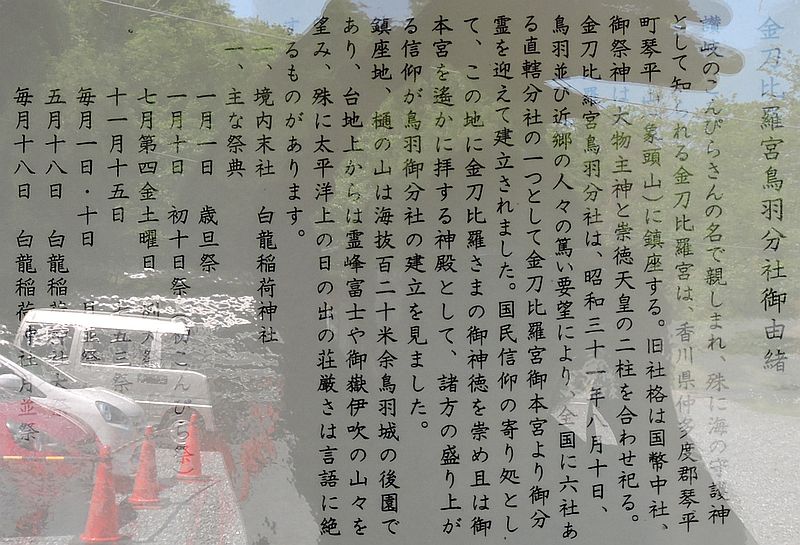 金刀比羅宮鳥羽分社御由緒
讃岐のこんぴらさんの名で親しまれ、殊に海の守護神
として知られる金刀比羅宮は、香川県仲多度郡琴平
町琴平山(象頭山)に鎮座する。旧社格は国幣中社、
御祭神は大物主神と崇徳天皇の二柱を合わせ祀る。
金刀比羅宮鳥羽分社は、昭和三十一年八月十日、
鳥羽並び近郷の人々の篤い要望により、全国に六社あ
る直轄分社の一つとして金刀比羅宮御本宮より御分
霊を迎えて建立されました。国民信仰の寄り処とし
て、この地に金刀比羅さまの御神徳を崇め且は御
本宮を遙かに拝する神殿として、諸方の盛り上が
る信仰が鳥羽御分社の建立を見ました。
鎮座地、樋の山は海抜百二十米余鳥羽城の後園で
あり、台地上からは霊峰富士や御嶽伊吹の山々を
望み、殊に太平洋上の日の出の荘厳さは言語に絶
するものがあります。
一、境内末社 白龍稲荷神社
一、主な祭典
一月一日 歳旦祭
一月十日 初十日祭(初こんぴら祭)
七月第四金土曜日 例大祭
十一月十五日 七五三祭
毎月一日・十日 月並祭
五月十八日 白龍稲荷神社大祭
毎月十八日 白龍稲荷神社月並祭